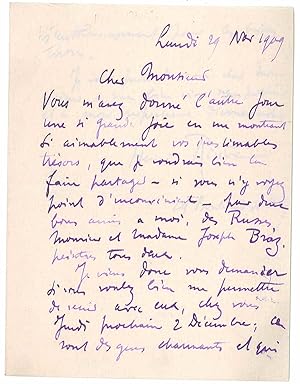 Lundi 29 Nov 1909
Cher Monsieur
Vous m'avez donné l'autre jour
une si grande joie en me montrant
si aimablement vos inestimables
trésors, que je voudrais bien en
faire partager – si vous n'y voyez
point d'inconvénient – pour deux
bons amis à moi, des Russes,
Monsieur et Madame Joseph Braz,
peintres tous deux.
Je viens donc vous demander
si vous voulez bien me permettre
de venir avec eux, chez vous
Jeudi prochain 2 Décembre; ce
sont des gens charmants et qui